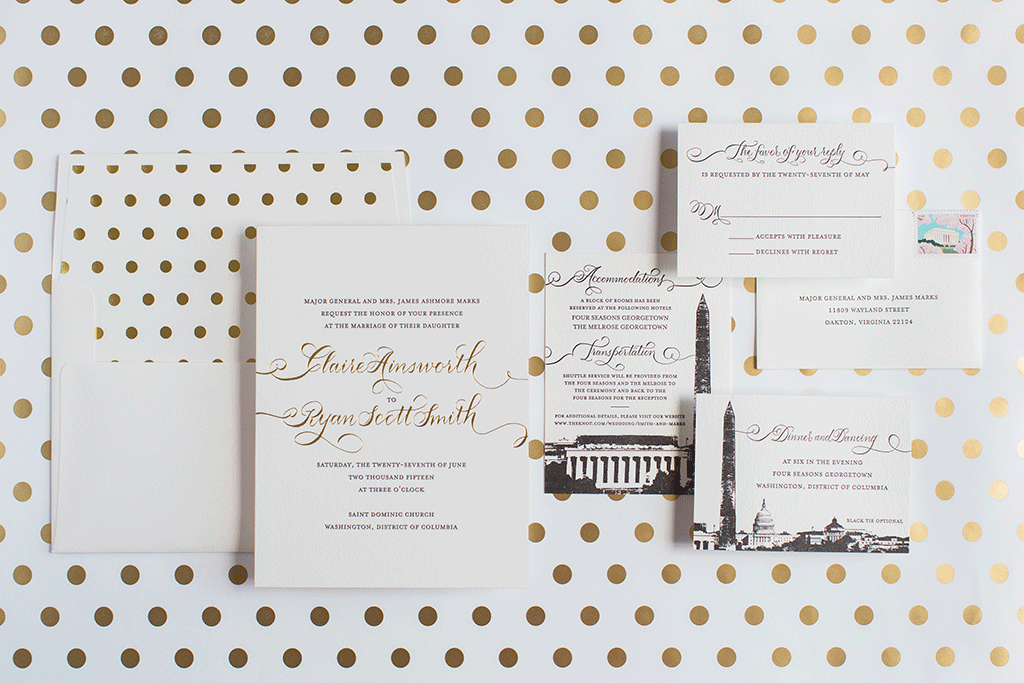 MAJOR GENERAL AND MRS. JAMES ASHMORE MARKS
REQUEST THE HONOR OF YOUR PRESENCE
AT THE MARRIAGE OF THEIR DAUGHTER
Claire Ainsworth
TO
Ryan Scott Smith
SATURDAY, THE TWENTY-SEVENTH OF JUNE
TWO THOUSAND FIFTEEN
AT THREE O'CLOCK
SAINT DOMINIC CHURCH
WASHINGTON, DISTRICT OF COLUMBIA
Accommodations
A BLOCK OF ROOMS HAS BEEN
RESERVED AT THE FOLLOWING HOTELS
FOUR SEASONS GEORGETOWN
THE MELROSE GEORGETOWN
Transportation
SHUTTLE SERVICE WILL BE PROVIDED FROM
THE FOUR SEASONS AND THE MELROSE TO
THE CEREMONY AND BACK TO THE
FOUR SEASONS FOR THE RECEPTION
FOR ADDITIONAL DETAILS, PLEASE VISIT OUR WEBSITE
WWW.THEKNOT.COM/WEDDDING/SMITH-AND-MARKS
The favor of your reply
IS REQUESTED BY THE TWENTY-SEVENTH OF MAY
M
ACCEPTS WITH PLEASURE
DECLINES WITH REGRET
MAJOR GENERAL AND MRS. JAMES MARKS
11809 WAYLAND STREET
OAKTON, VIRGINIA 22124
Dinner and Dancing
AT SIX IN THE EVENING
FOUR SEASONS GEORGETOWN
WASHINGTON, DISTRICT OF COLUMBIA
BLACK TIE OPTIONAL